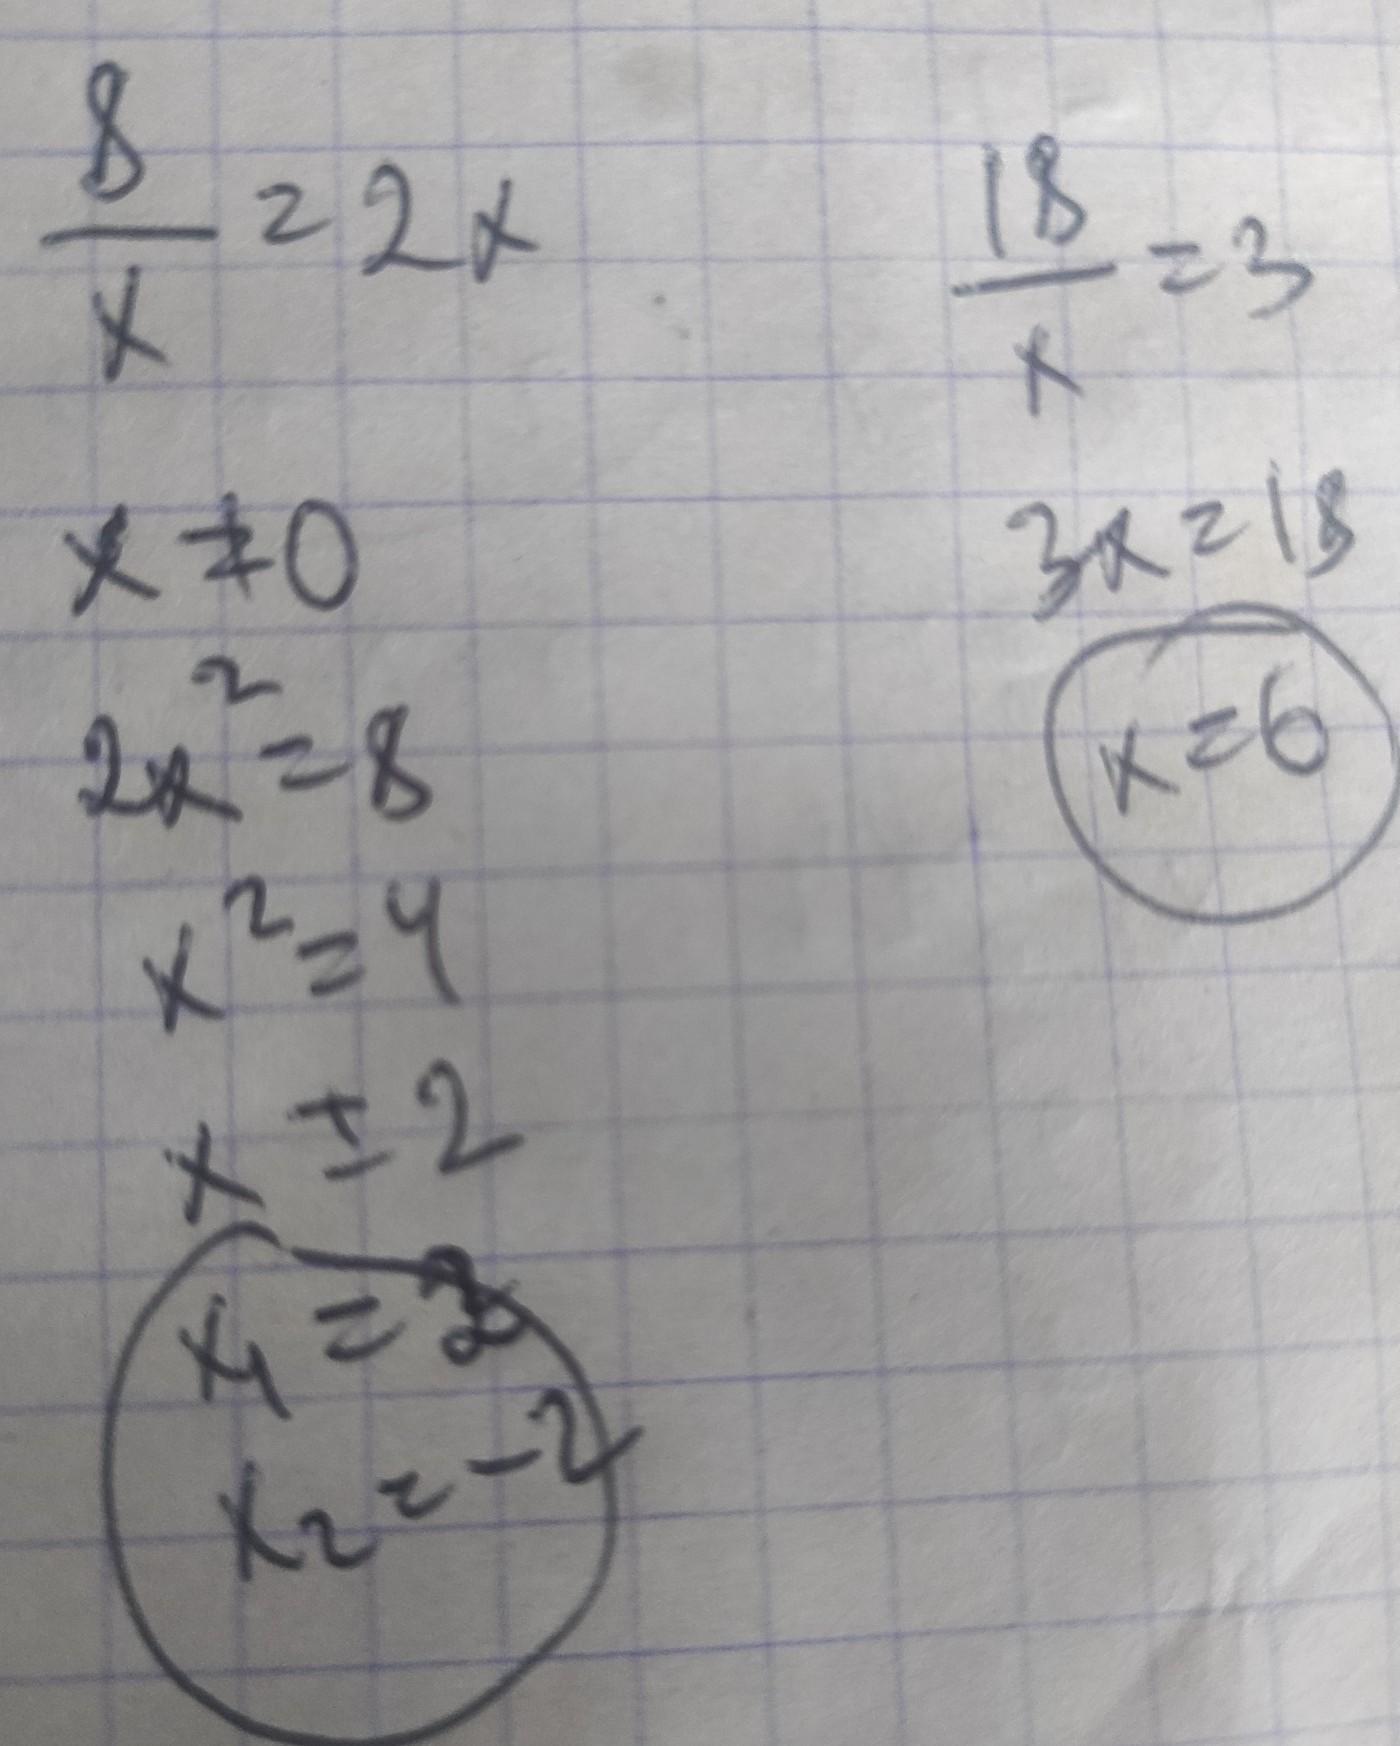 8/x = 2x
x ≠ 0
2x² = 8
x² = 4
x ± 2
x₁ = 2
x₂ = -2
18/x = 3
3x = 18
x = 6